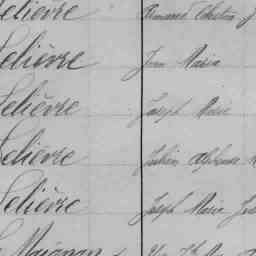 Lelièvre Armand Célestin J
Lelièvre Jean Marie
Lelièvre Joseph Marie
Lelièvre Julien Alphonse
Lelièvre Joseph Marie